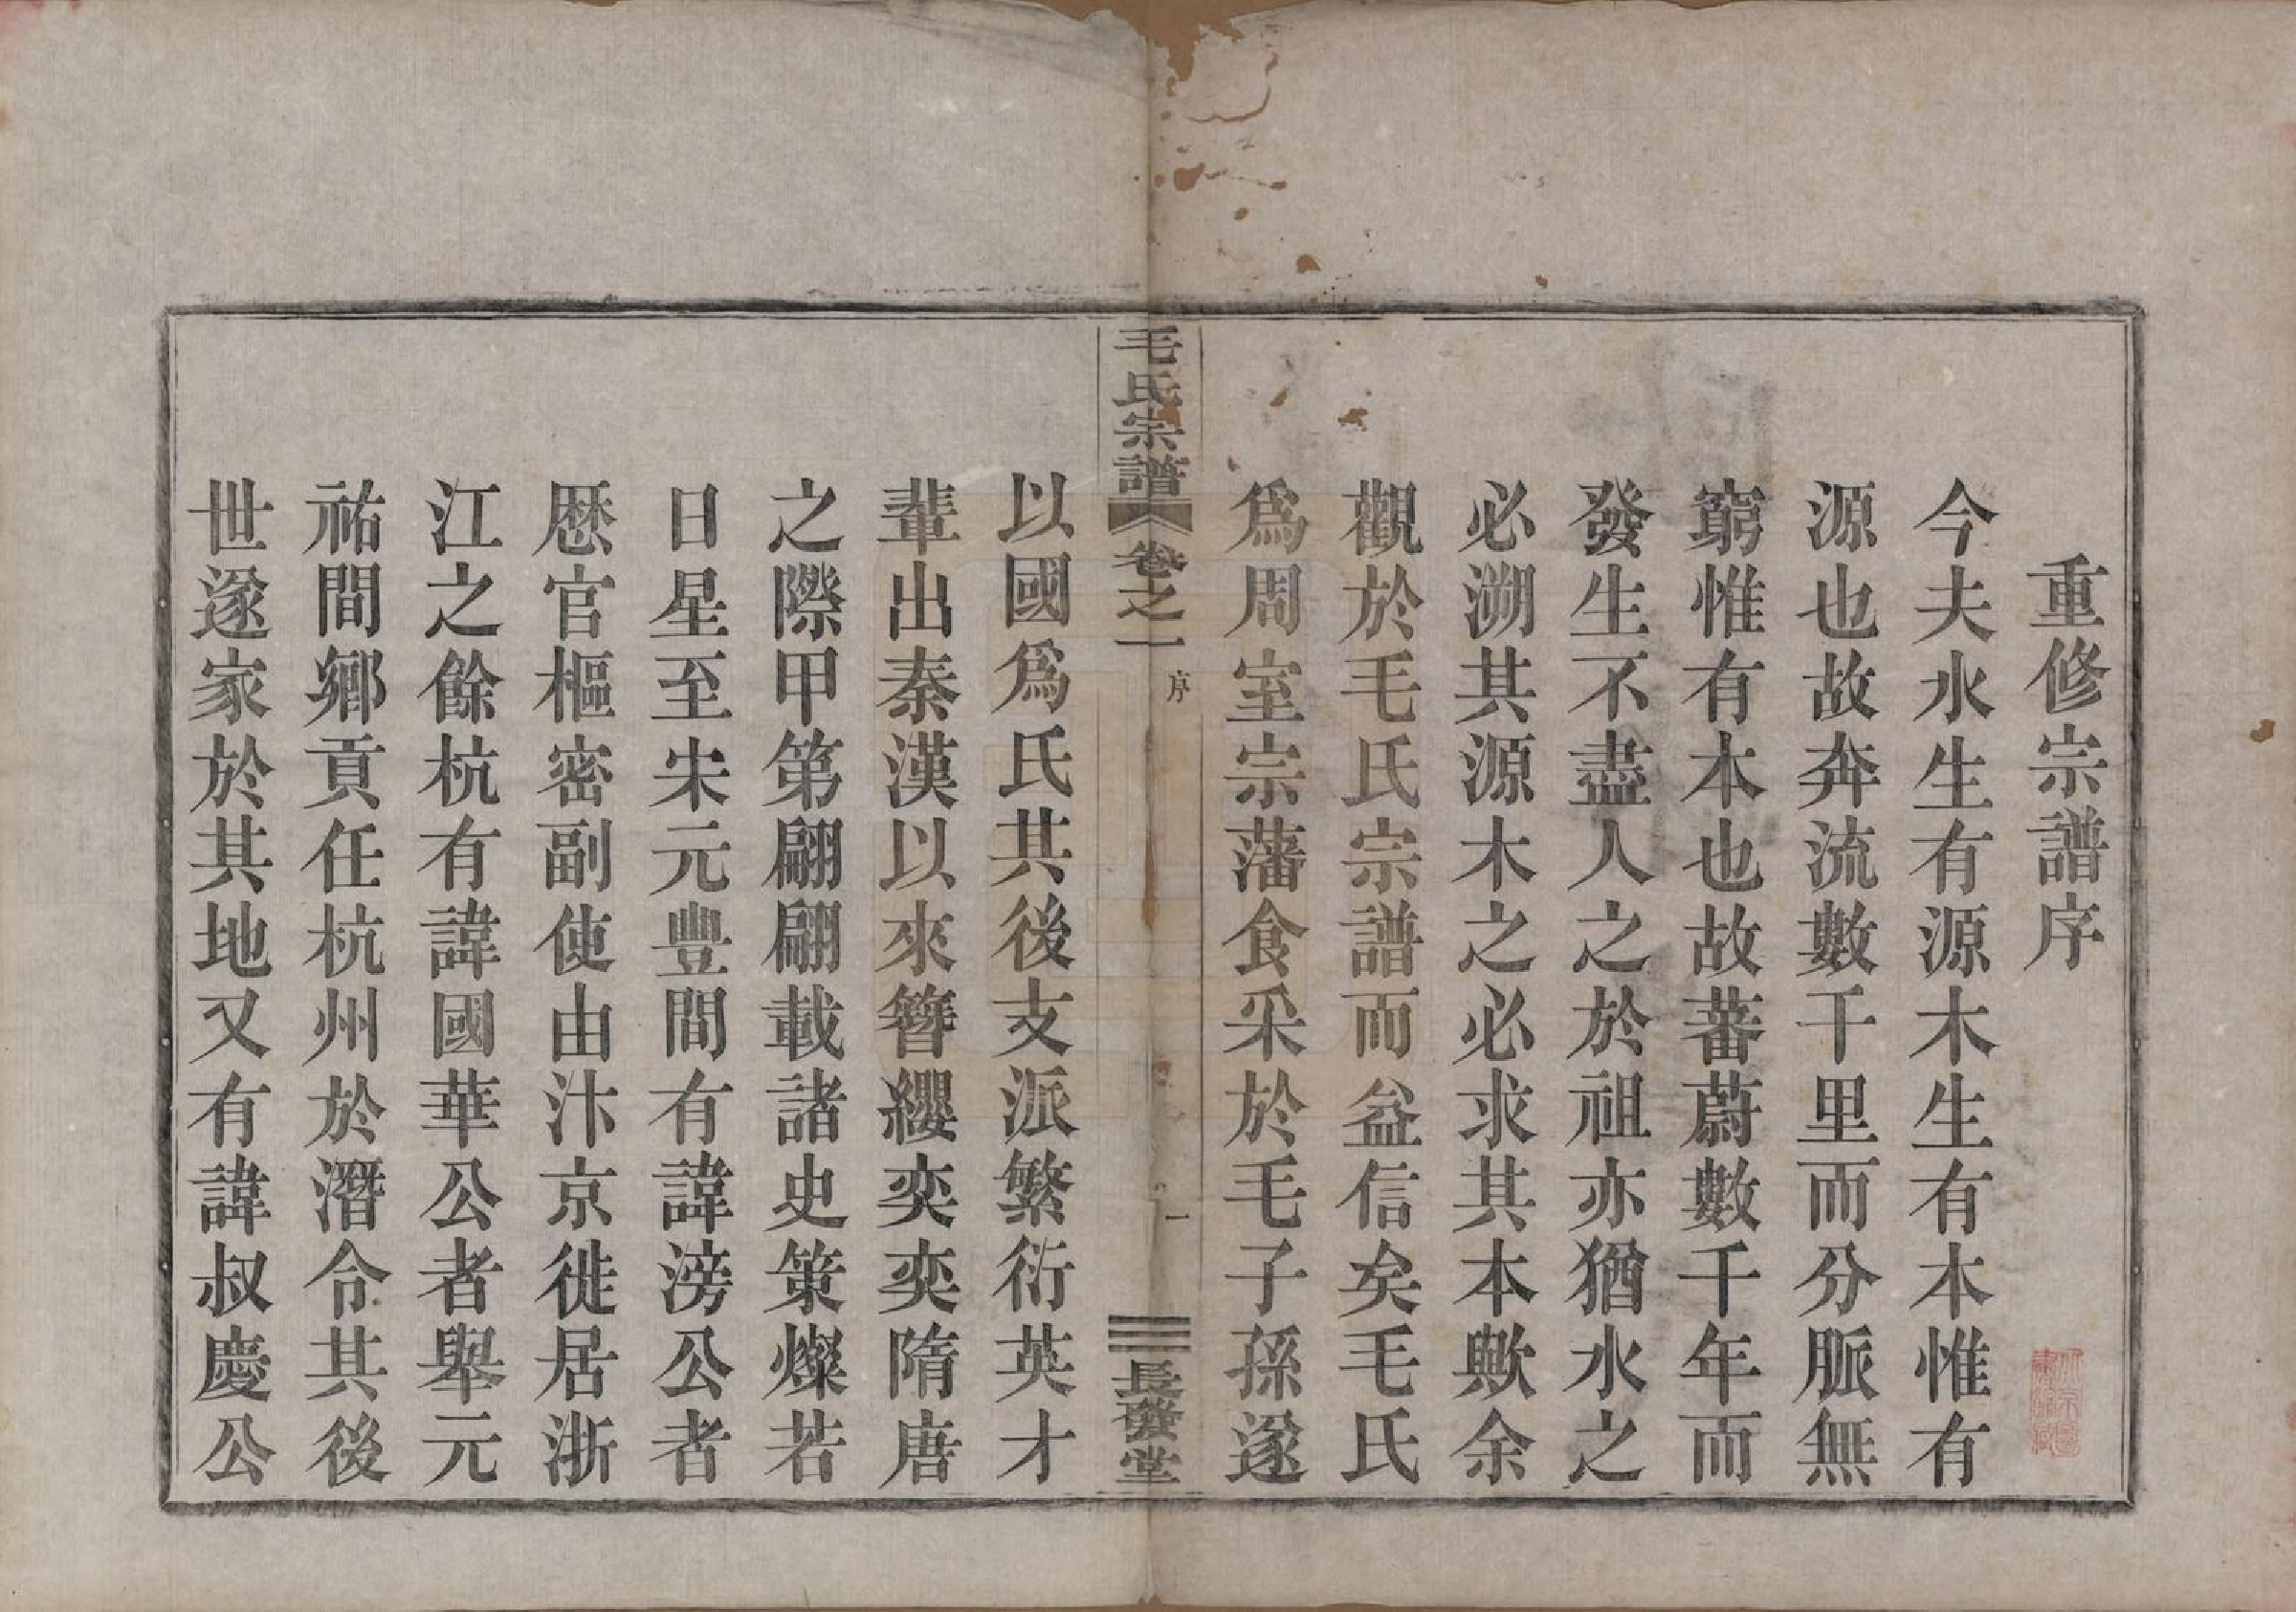 重修宗譜序
今夫水生有源木生有本惟有
源也故奔流數千里而分脈無
窮惟有本也故蕃蔚數千年而
發生不盡人之於祖亦猶水之
必溯其源木之必求其本歟余
觀於毛氏宗譜而益信矣毛氏
爲周室宗藩食采於毛子孫遂
毛氏宗譜
卷之一
序
一
長發堂
以國爲氏其後支派繁衍英才
輩出秦漢以來簪纓奕奕隋唐
之際甲第翩翩載諸史策燦若
日星至宋元豐間有諱滂公者
歴官樞密副使由汴京徙居浙
江之餘杭有諱國華公者舉元
祐間鄉貢任杭州於潛令其後
世遂家於其地又有諱叔慶公